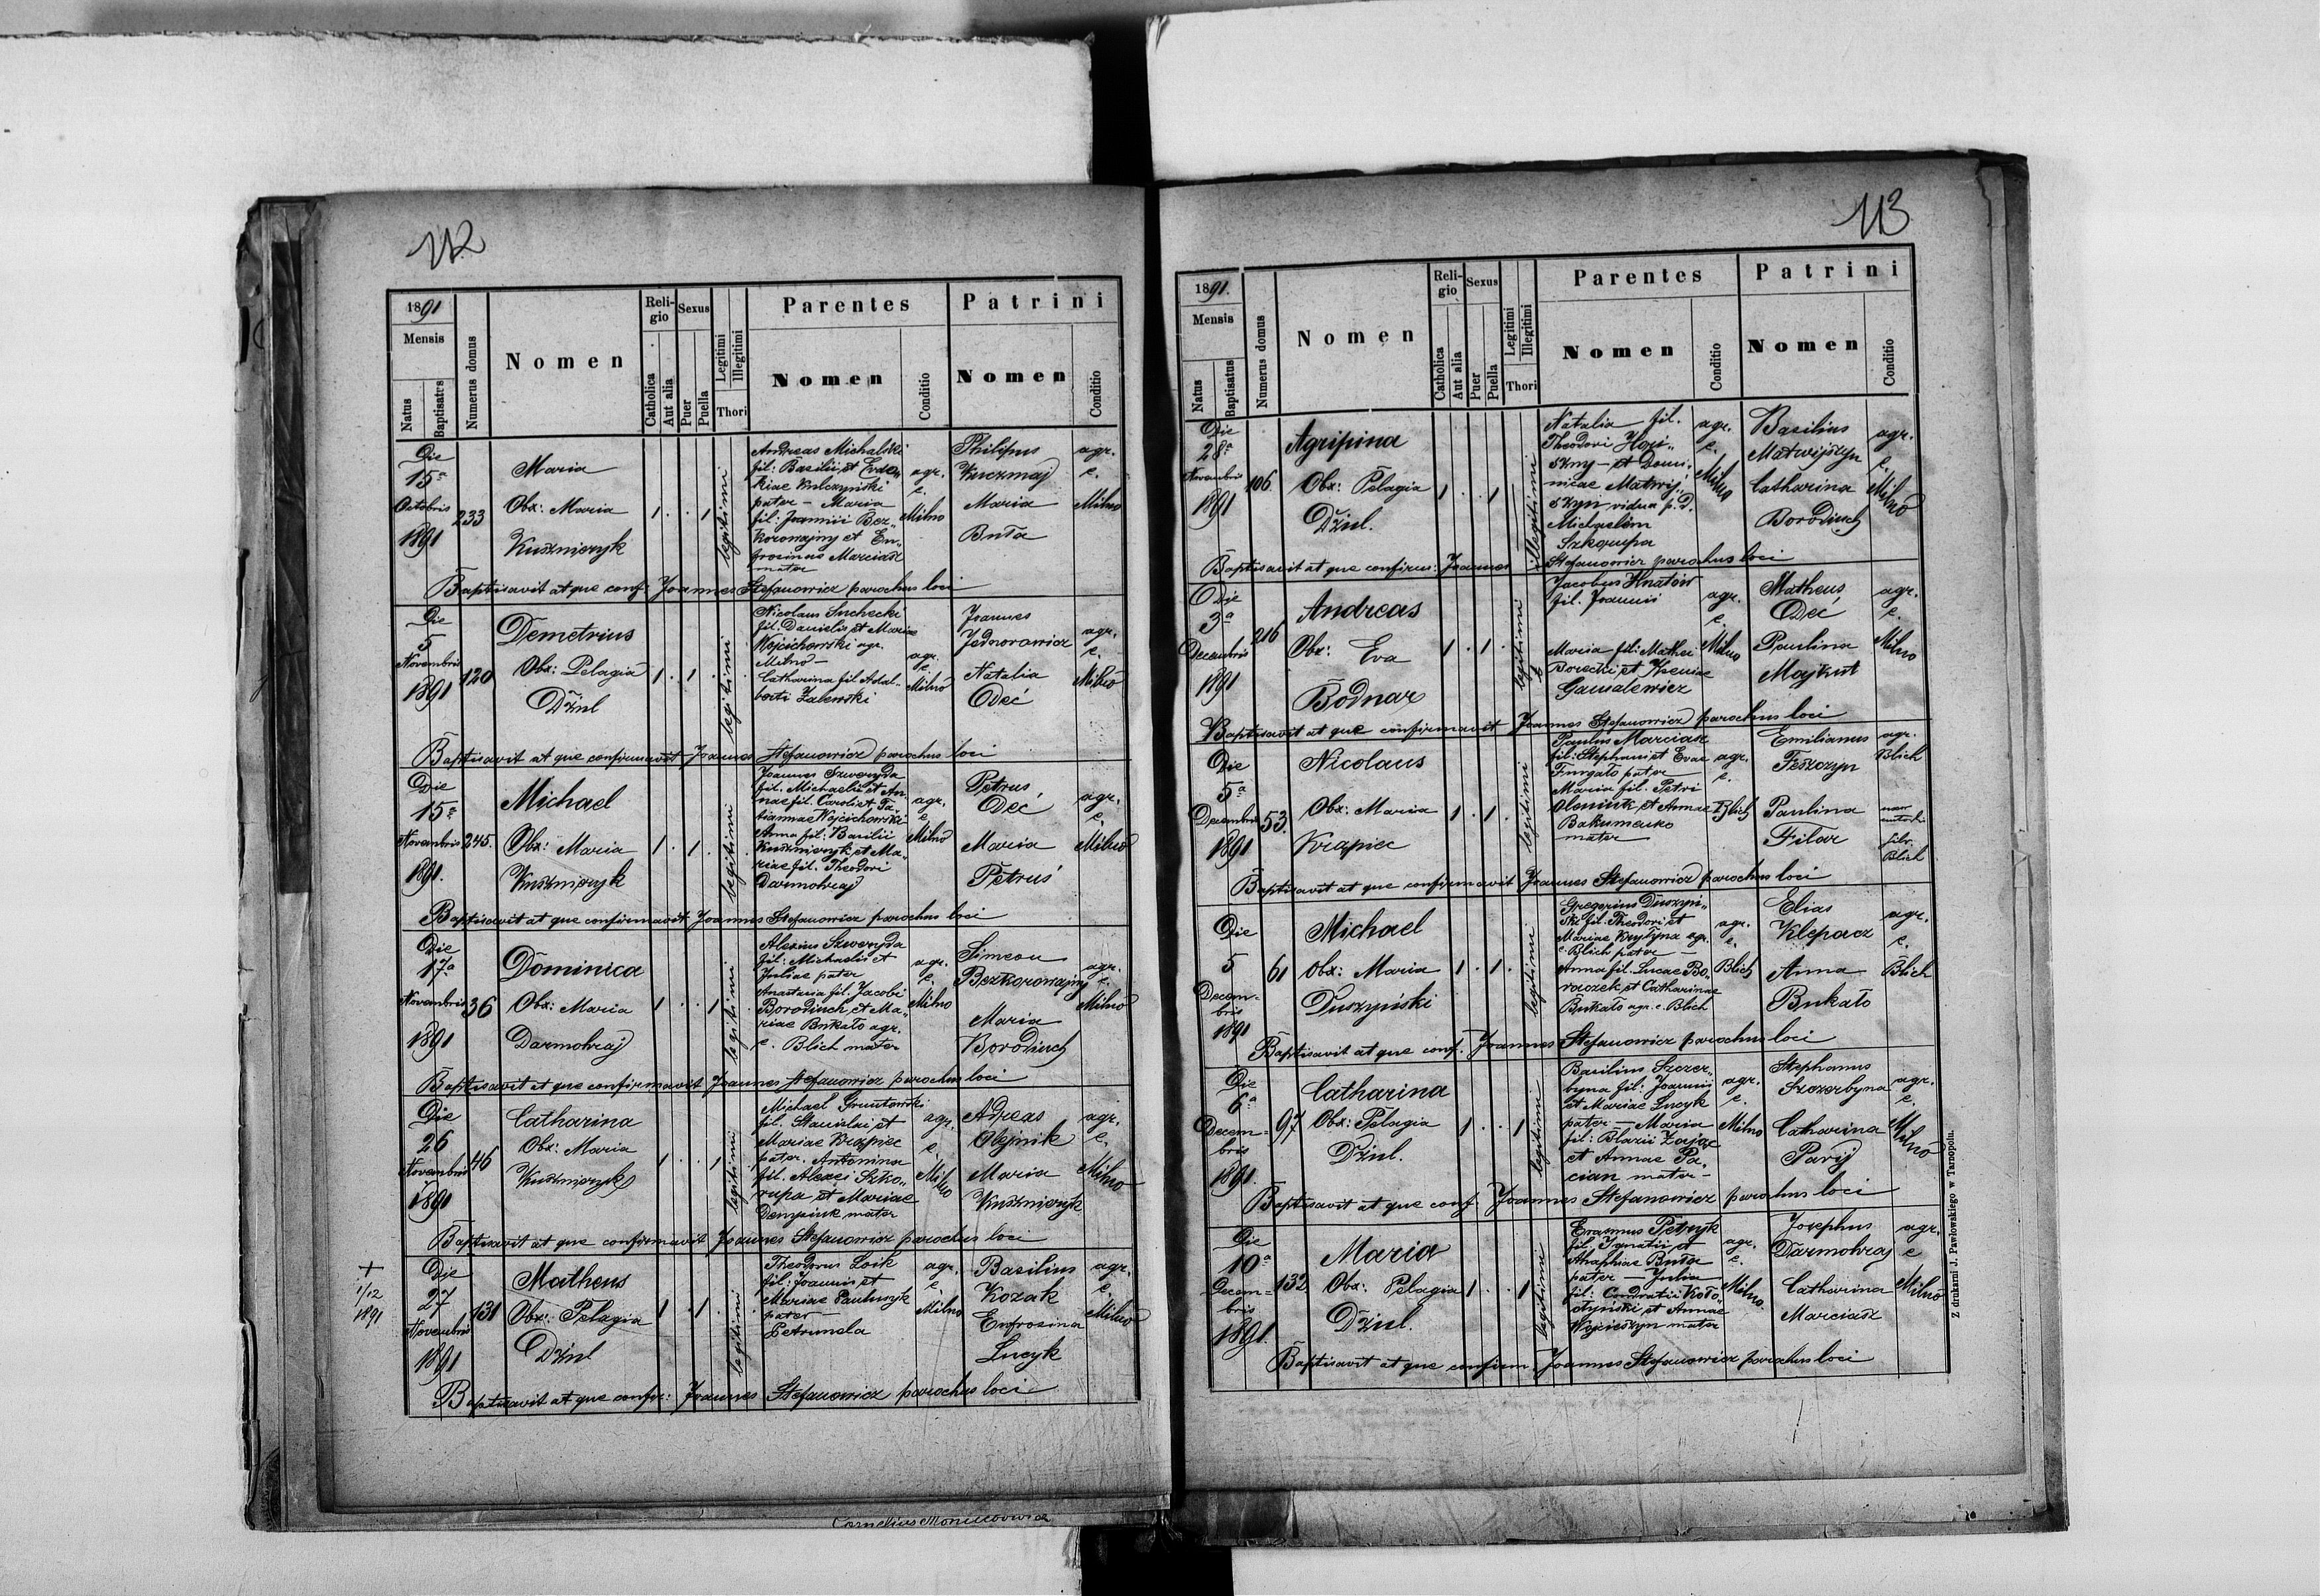 112
1891
Mensis
Natus
Baptisatus
Numerus domus
Nomen
Religio
Catholica
Aut alia
Sexus
Puer
Puella
Legitimi
Illegitimi
Thori
Parentes
Nomen
Conditio
Patrini
Nomen
Conditio
Die
15a
Octobris
1891
233
Maria
Obx: Maria
Kusznieryk
1 . . 1
legitimi
Andreas Michalski
fil: Basilii et Evdo„
kiae Kulczyński
pater – Maria
fil: Joannii Bez„
korowajny et Eu„
frosinae Marciasz
mater
agr.
c.
Milno
Philipus
Kuczmaj
Maria
Buła
agr.
c.
Milno
Baptisavit atque conf: Joannes Stefanowicz parochus loci
Die
5
Novembris
1891
120
Demetrius
Obx: Pelagia
Dżul
1 . 1 .
legitimi
Nicolaus Suchecki
fil. Danielis et Mariae
Wojcichowski agr.
Milno –
Catharina fil Adal„
berti Zalewski
agr.
c.
Milno
Joannes
Jednorowicz
Natalia
Deć
agr.
c.
Milno
Baptisavit atque confirmavit Joannes Stefanowicz parochus loci
Die
15a
Novembris
1891.
245.
Michael
Obx: Maria
Kusznieryk
1 . 1 .
legitimi
Joannes Szweryda
fil. Michaelis et An„
nae fil. Caroli et Ta„
tiannae Wojcichowski
Anna fil: Basilii
Kusznieryk et Ma„
riae fil. Theodori
Darmohraj
agr.
c.
Milno
Petrus
Deć
Maria
Petruś
agr.
c.
Milno
Baptisavit atque confirmavit Joannes Stefanowicz parochus loci
Die
17a
Novembris
1891
36
Dominica
Obx: Maria
Darmohraj
1 . . 1
legitimi
Alexius Szweryda
fil: Michaelis et
Juliae pater
Anastasia fil. Jacobi
Borodiuch et Ma„
riae Bukało agr.
c. Blich mater
agr.
c.
Milno
Simeon
Bezkorowajny
Maria
Borodiuch
agr.
c.
Milno
Baptisavit atque confirmavit Joannes Stefanowicz parochus loci
Die
26
Novembris
1891
46
Catharina
Obx: Maria
Kusznieryk
1 . . 1
legitimi
Michael Gruntowski
fil. Stanislai et
Mariae Krąpiec
pater. Antonina
fil. Alexei Szko„
rupa et Mariae
Dempiuk mater
agr.
c.
Milno
Adreas
Olejnik
Maria
Kusznieryk
agr.
c.
Milno
Baptisavit atque confirmavit Joannes Stefanowicz parochus loci
+
1/12
1891
Die
27
Novembris
1891
131
Matheus
Obx: Pelagia
Dżul
1 . 1 .
legitimi
Theodorus Loik
fil: Joannis et
Mariae Pauluszyk
pater
Petrunela
agr.
c.
Milno
Basilius
Kozak
Eufrosina
Lucyk
agr.
c.
Milno
Baptisavit atque confir: Joannes Stefanowicz parochus loci
113
1891.
Mensis
Natus
Baptisatus
Numerus domus
Nomen
Religio
Catholica
Aut alia
Sexus
Puer
Puella
Legitimi
Illegitimi
Thori
Parentes
Nomen
Conditio
Patrini
Nomen
Conditio
Die
28a
Novembris
1891
106
Agripina
Obx: Pelagia
Dżul.
1 . . 1
illegitimi
Natalia fil.
Theodori
et Domi„
nicae Matwij„
szyn vidua p. d.
Michaelem
Szkorupa
agr.
c.
Milno
Basilius
Matwijszyn
Catharina
Borodiuch
agr.
c.
Milno
Baptisavit atque confirm: Joannes Stefanowicz parochus loci
Die
3a
Decembris
1891
216
Andreas
Obx: Eva
Bodnar
1 . 1 .
legitimi
Jacobus Hnatów
fil. Joannis
Maria fil: Mathei
Borecki et Xeniae
Gamalewicz
agr.
c.
Milno
Matheus
Deć
Paulina
Majkut
agr.
c.
Milno
Baptisavit atque confirmavit Joannes Stefanowicz parochus loci
Die
5a
Decembris
1891
53.
Nicolaus
Obx: Maria
Krąpiec
1 . 1 .
legitimi
Paulus Marciasz
fil: Stephani et Evae
Furgało pater
Maria fil. Petri
Oleniuk et Annae
Bakumenko
mater
agr.
c.
Blich
Emilianus
Feszczyn
Paulina
Filar
agr.
Blich
Blich
Baptisavit atque confirmavit Joannes Stefanowicz parochus loci
Die
5
Decem=
bris
1891
61
Michael
Obx: Maria
Duszyński
1 . 1 .
legitimi
Gregorius Duszyń„
ski fil. Theodori et
Mariae Krytyna agr.
c. Blich pater –
Anna fil. Lucae Bo„
raczek et Catharinae
Bukało agr. c. Blich
agr.
c.
Blich
Elias
Klepacz
Anna
Bukało
agr.
c.
Blich
Baptisavit atque conf. Joannes Stefanowicz parochus loci
Die
6a
Decem=
bris
1891.
97
Catharina
Obx: Pelagia
Dżul.
1 . . 1
legitimi
Basilius Szczer„
byna fil: Joannis
et Mariae Lucyk
pater – Maria
fil: Blasii Zając
et Annae Pa„
cian mater –
agr.
c.
Milno
Stephanus
Szczerbyna
Catharina
Paryj
agr.
c.
Milno
Baptisavit atque conf. Joannes Stefanowicz parochus loci
Die
10a
Decem=
bris
1891.
132.
Maria
Obx: Pelagia
Dżul.
1 . . 1
legitimi
Erasmus Petryk
fil Ignatii et
Ahaphiae Buła
pater – Julia
fil: Condratii Koło„
dyński et Annae
Wojcieszyn mater
agr.
c.
Milno.
Josephus
Darmohraj
Catharina
Marciasz
agr.
c
Milno
Baptisavit atque confirm. Joannes Stefanowicz parochus loci
Z drukarni J. Pawłowskiego w Tarnopolu.